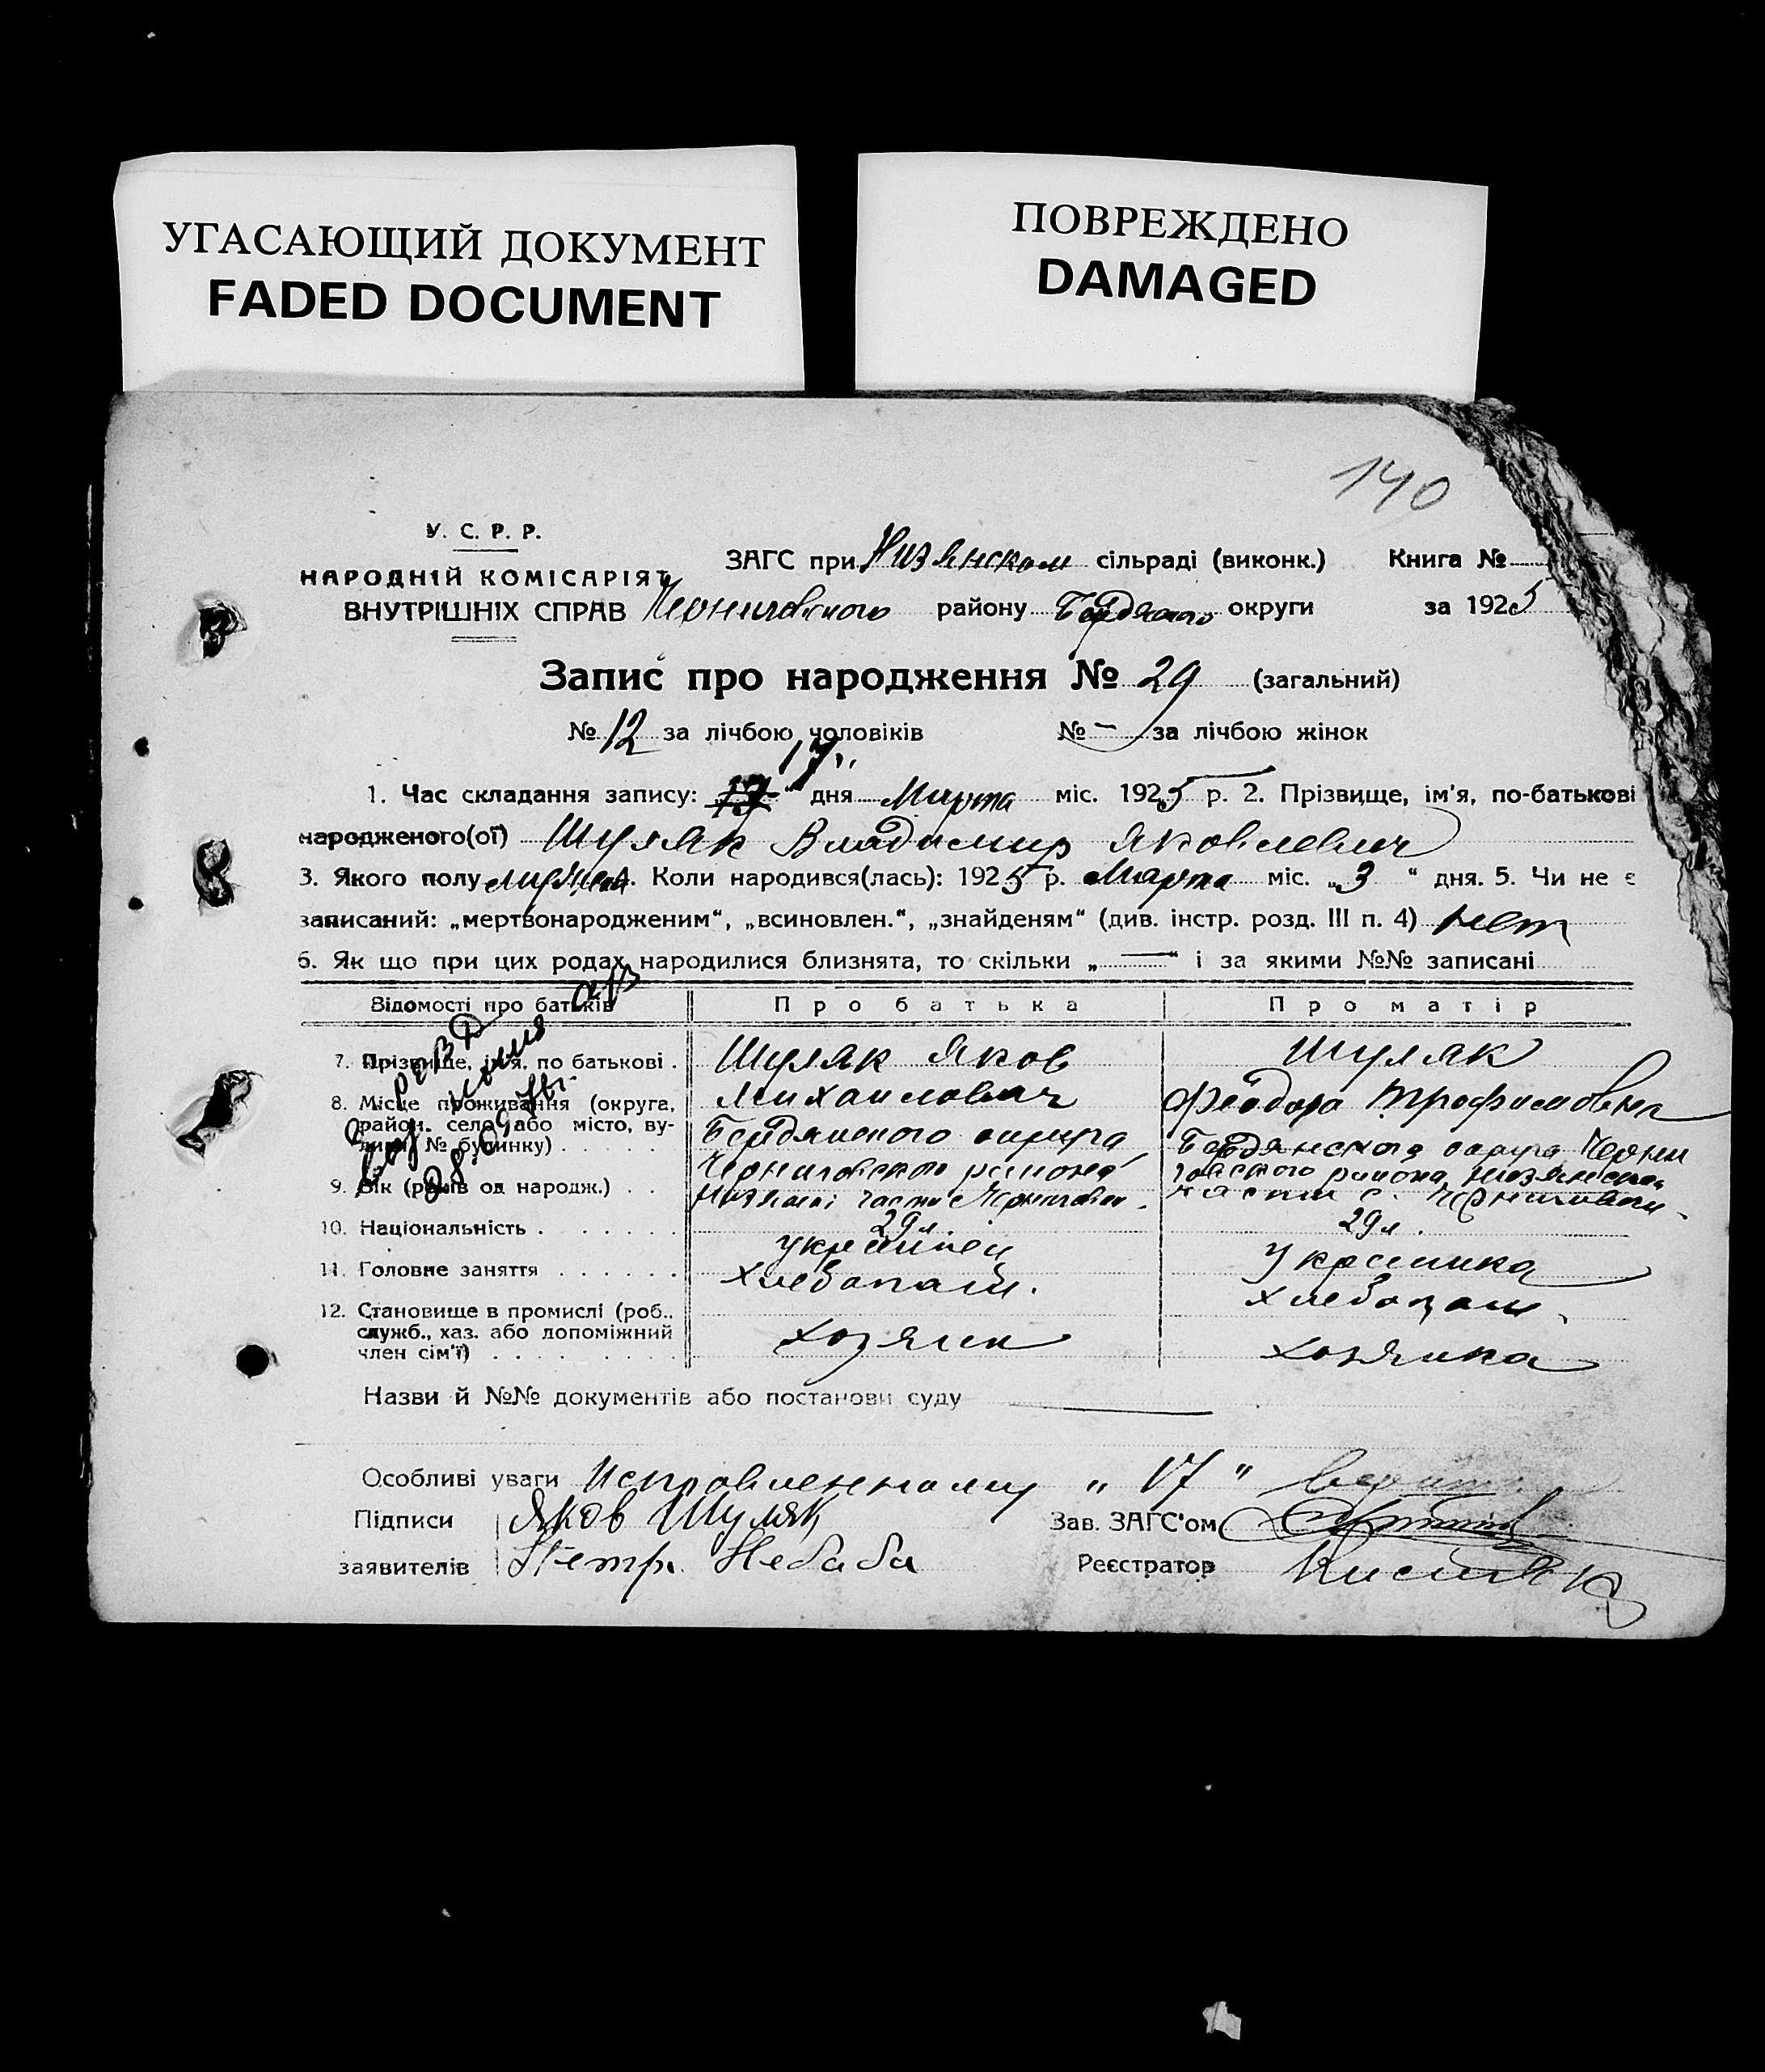 УГАСАЮЩИЙ ДОКУМЕНТ
FADED DOCUMENT
ПОВРЕЖДЕНО
DAMAGED
140
У. С. Р. Р.
НАРОДНІЙ КОМІСАРІЯТ
ВНУТРІШНІХ СПРАВ
ЗАГС при Низянском сільраді (виконк.) Книга №
Черниговского району Бердянского округи за 1925
Запис про народження № 29 (загальний)
№ 12 за лічбою чоловіків № — за лічбою жінок
17"
1. Час складання запису: дня Марта міс. 1925 р. 2. Прізвище, ім'я, по-батькові
народженого(ої) Шуляк Владимир Яковлевич
3. Якого полу мужеск 4. Коли народився(лась): 1925 р. Марта міс. „3" дня. 5. Чи не є
записаний: „мертвонародженим", „всиновлен.", „знайденям" (див. інстр. розд. III п. 4) нет
6. Як що при цих родах народилися близнята, то скільки „—" і за якими №№ записані
Відомості про батьків Про батька Про матір
7. Прізвище, ім'я, по батькові . Шуляк Яков Шуляк
Михаилович Феодора Трофимовна
8. Місце проживання (округа, район, село або місто, вулиця, № будинку) . . . . .
Бердянского округа Бердянского округа Черни
Черниговского района говского района, Низянской
части Черниговки. части с. Черниговки.
9. Вік (років од народж.) . . 29 л. 29 л.
10. Національність . . . . . . украинец Украинка
11. Головне заняття . . . . . . Хлебопаш. Хлебопаш.
12. Становище в промислі (роб.,
служб., хаз. або допоміжний
член сім'ї) . . . . . . . . хозяин хозяика
Назви й №№ документів або постанови суду —
Особливі уваги Исправленному „17" верить
Підписи Яков Шуляк Зав. ЗАГС'ом
заявителів Петр. Небаба Реєстратор Кисляк